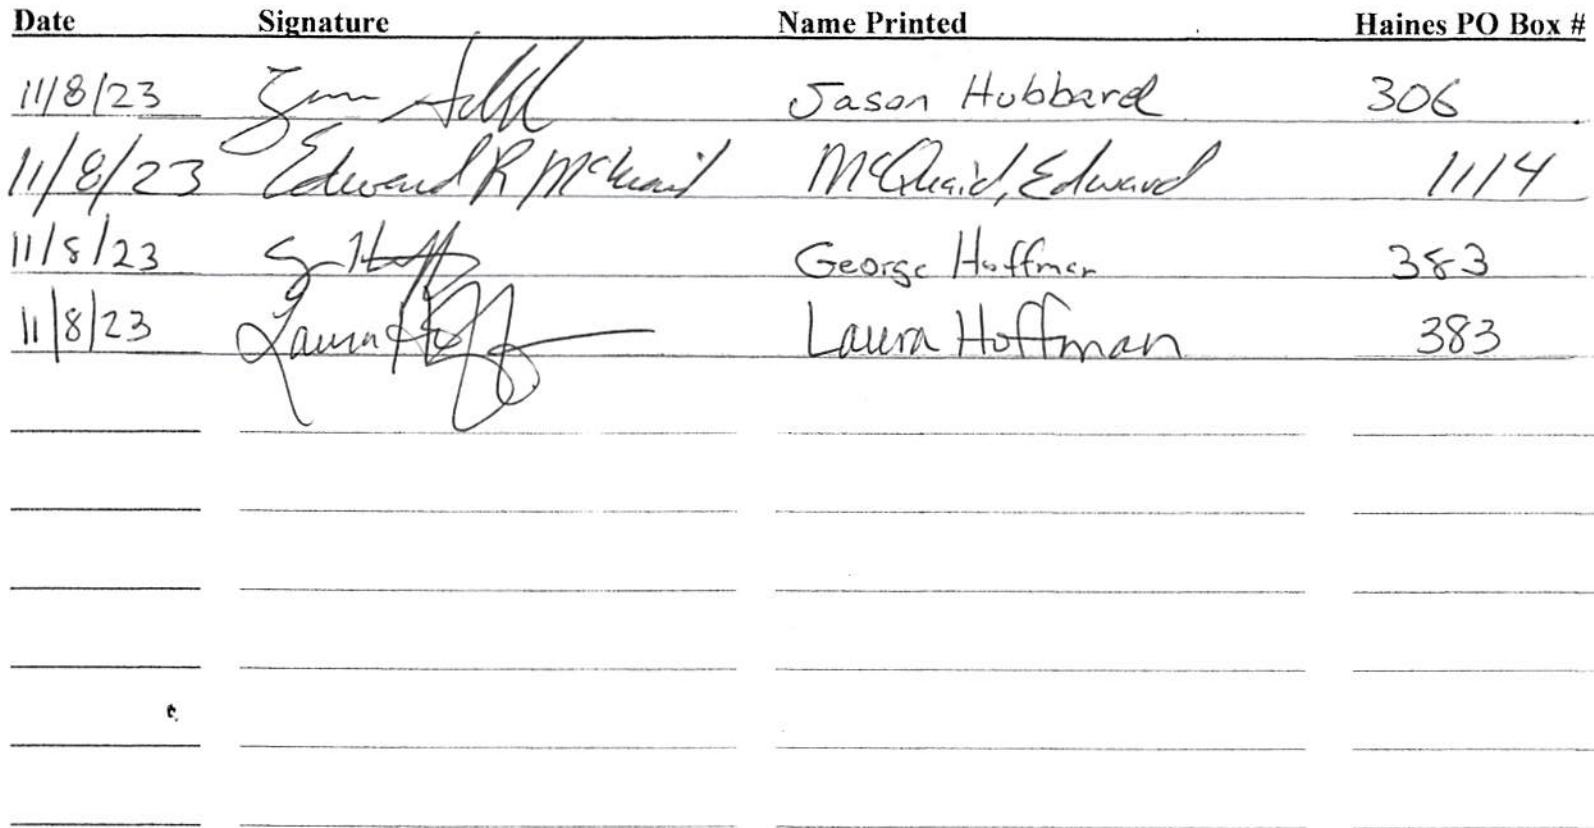 Date Signature Name Printed Haines PO Box #
11/8/23 Jason Hubbard 306
11/8/23 Edward R McQuaid McQuaid, Edward 1114
11/8/23 George Hoffman 383
11/8/23 Laura Hoffman Laura Hoffman 383